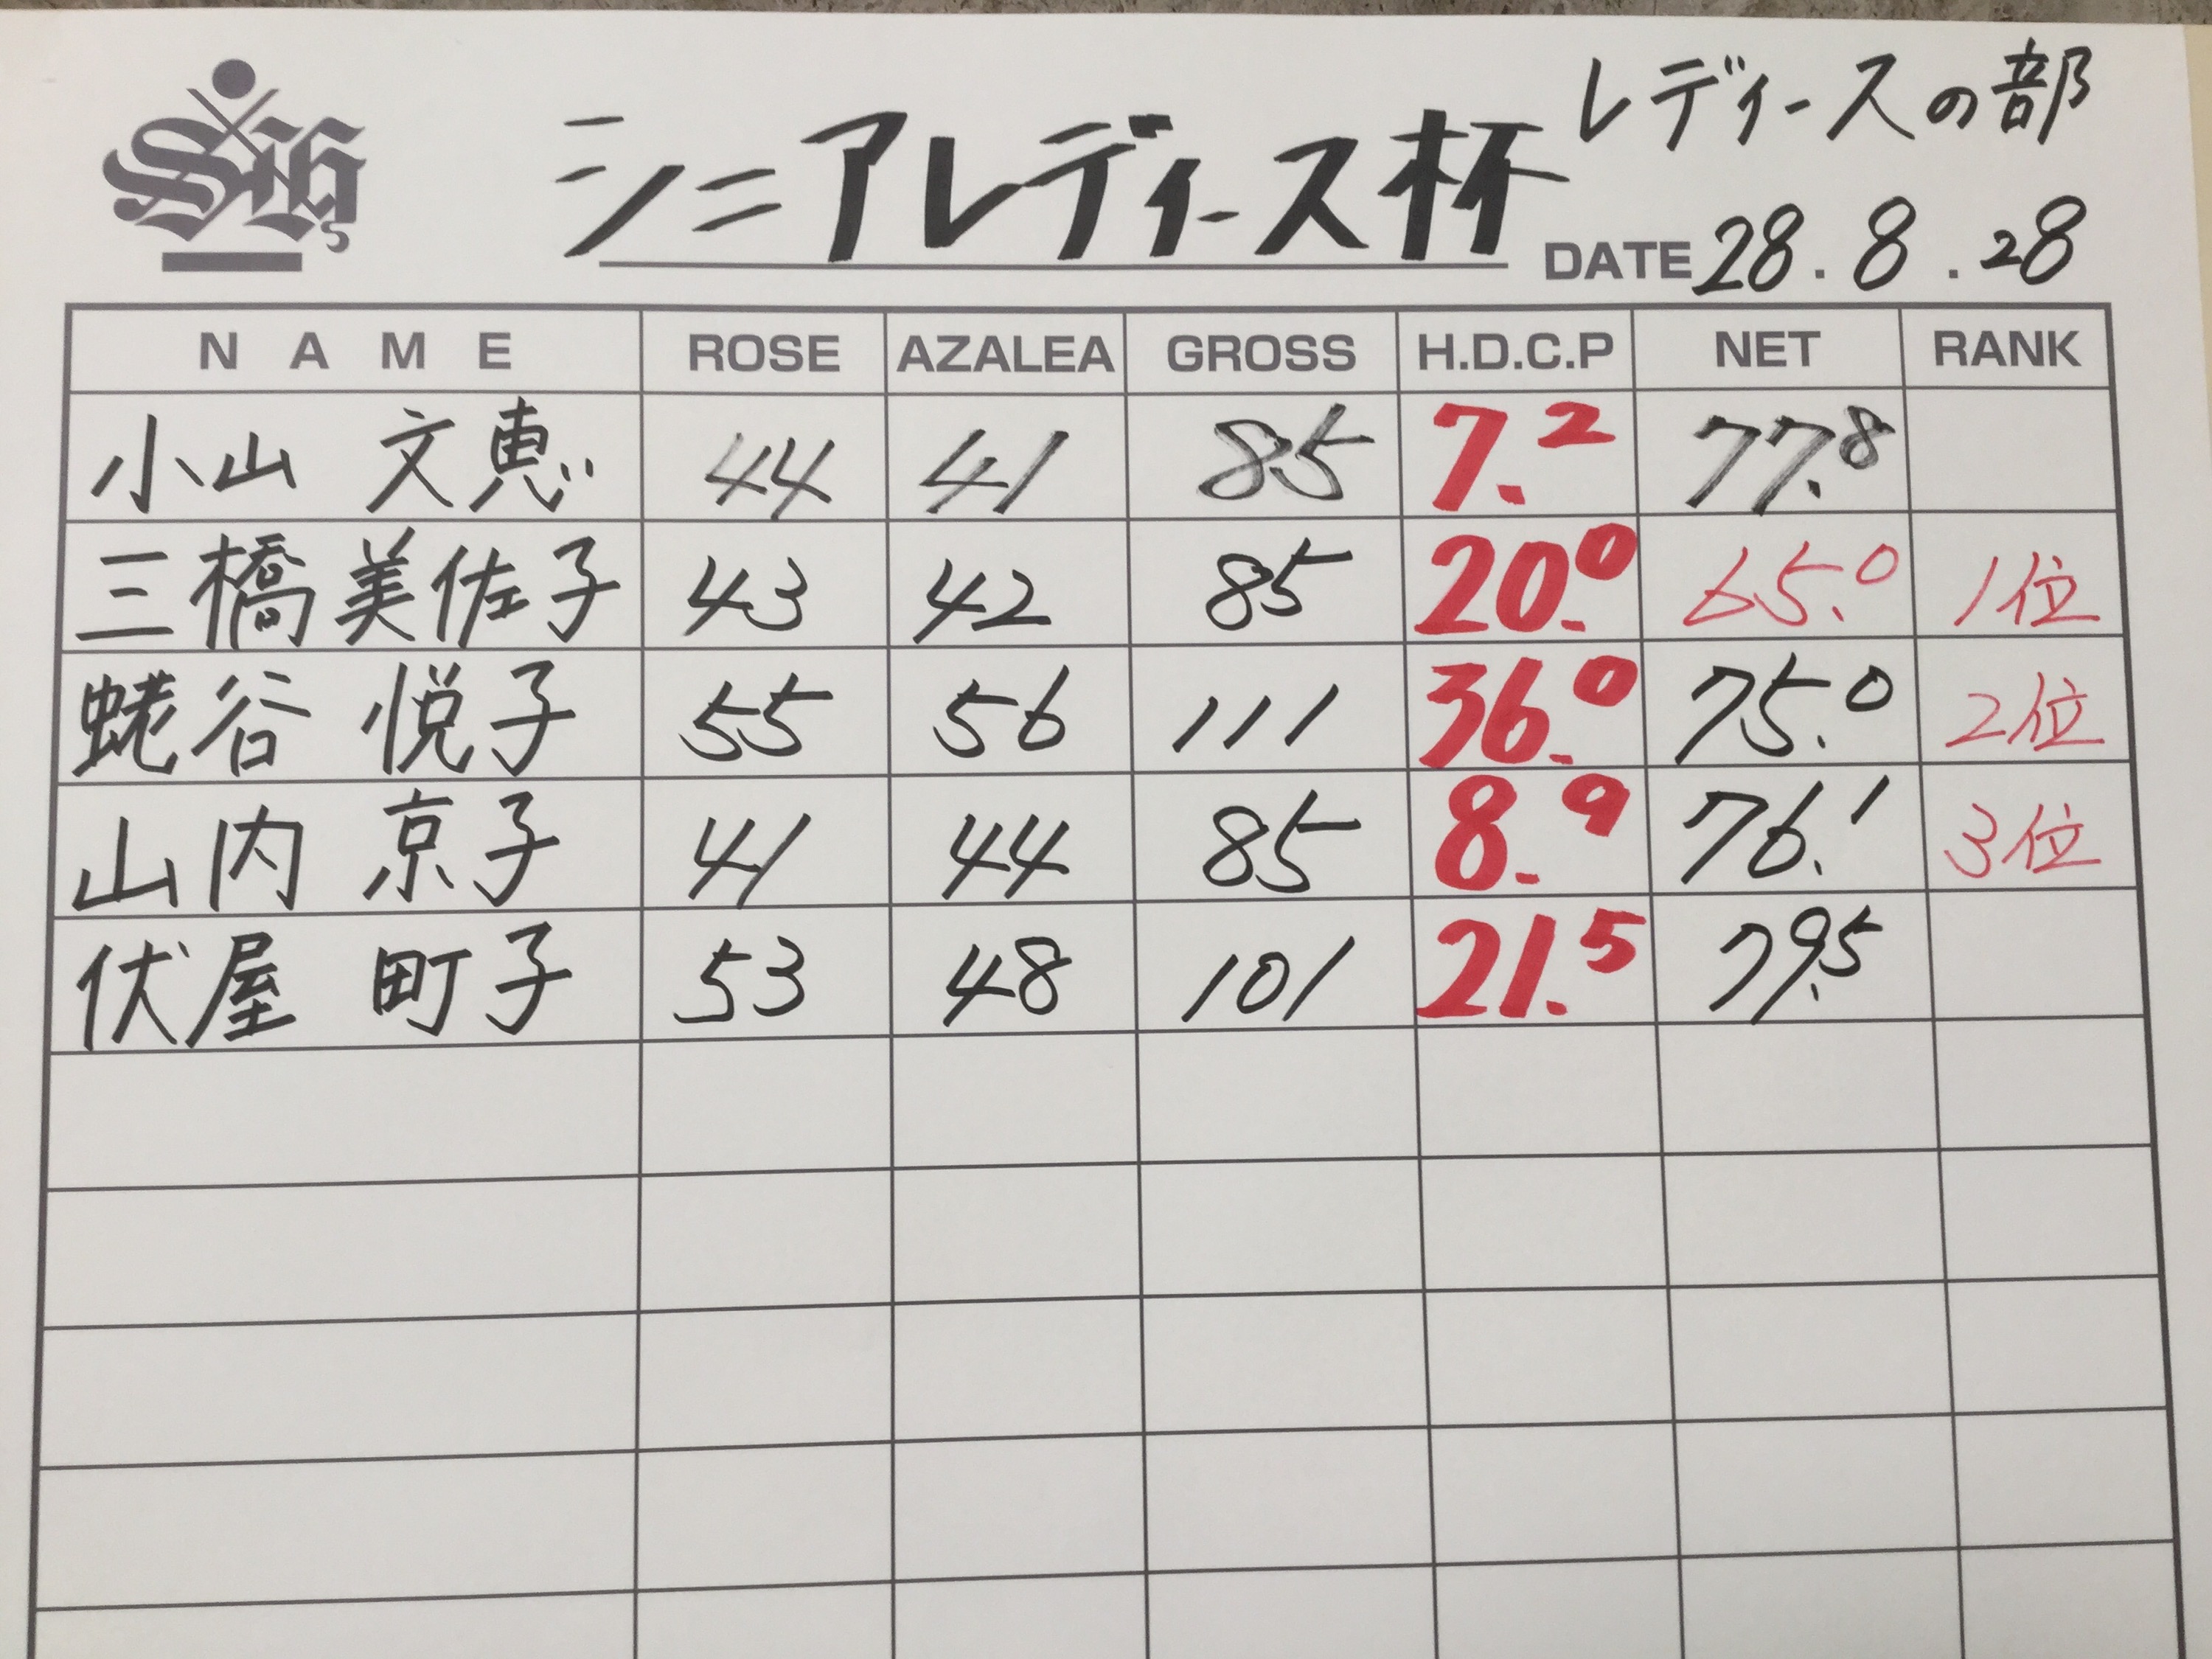 レディースの部
シニアレディース杯
DATE 28.8.28
NAME ROSE AZALEA GROSS H.D.C.P NET RANK
小山 文恵 44 41 85 7.2 77.8
三橋 美佐子 43 42 85 20.0 65.0 1位
蛯谷 悦子 55 56 111 36.0 75.0 2位
山内 京子 41 44 85 8.9 76.1 3位
伏屋 町子 53 48 101 21.5 79.5